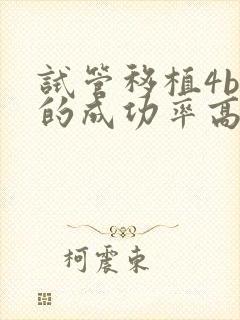 試管移植4b
的成功率高
柯震東